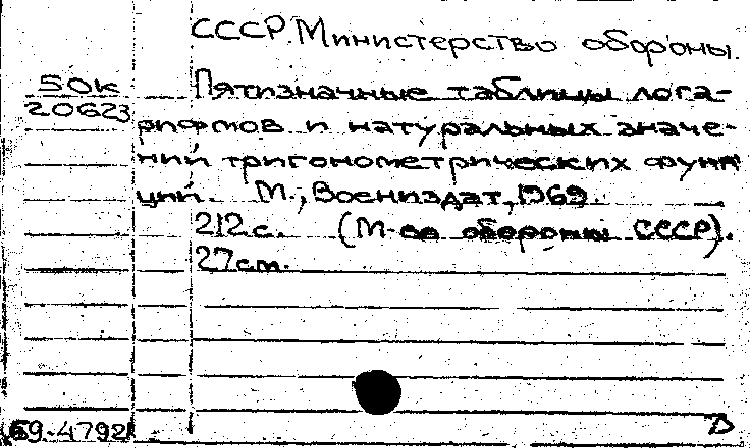 СССР. Министерство обороны.
50к
20623
Пятизначные таблицы лога-
рифмов и натуральных значе-
ний тригонометрических функ
ций. М., Воениздат, 1969.
212с. (М-во обороны СССР).
27см.
69-4792